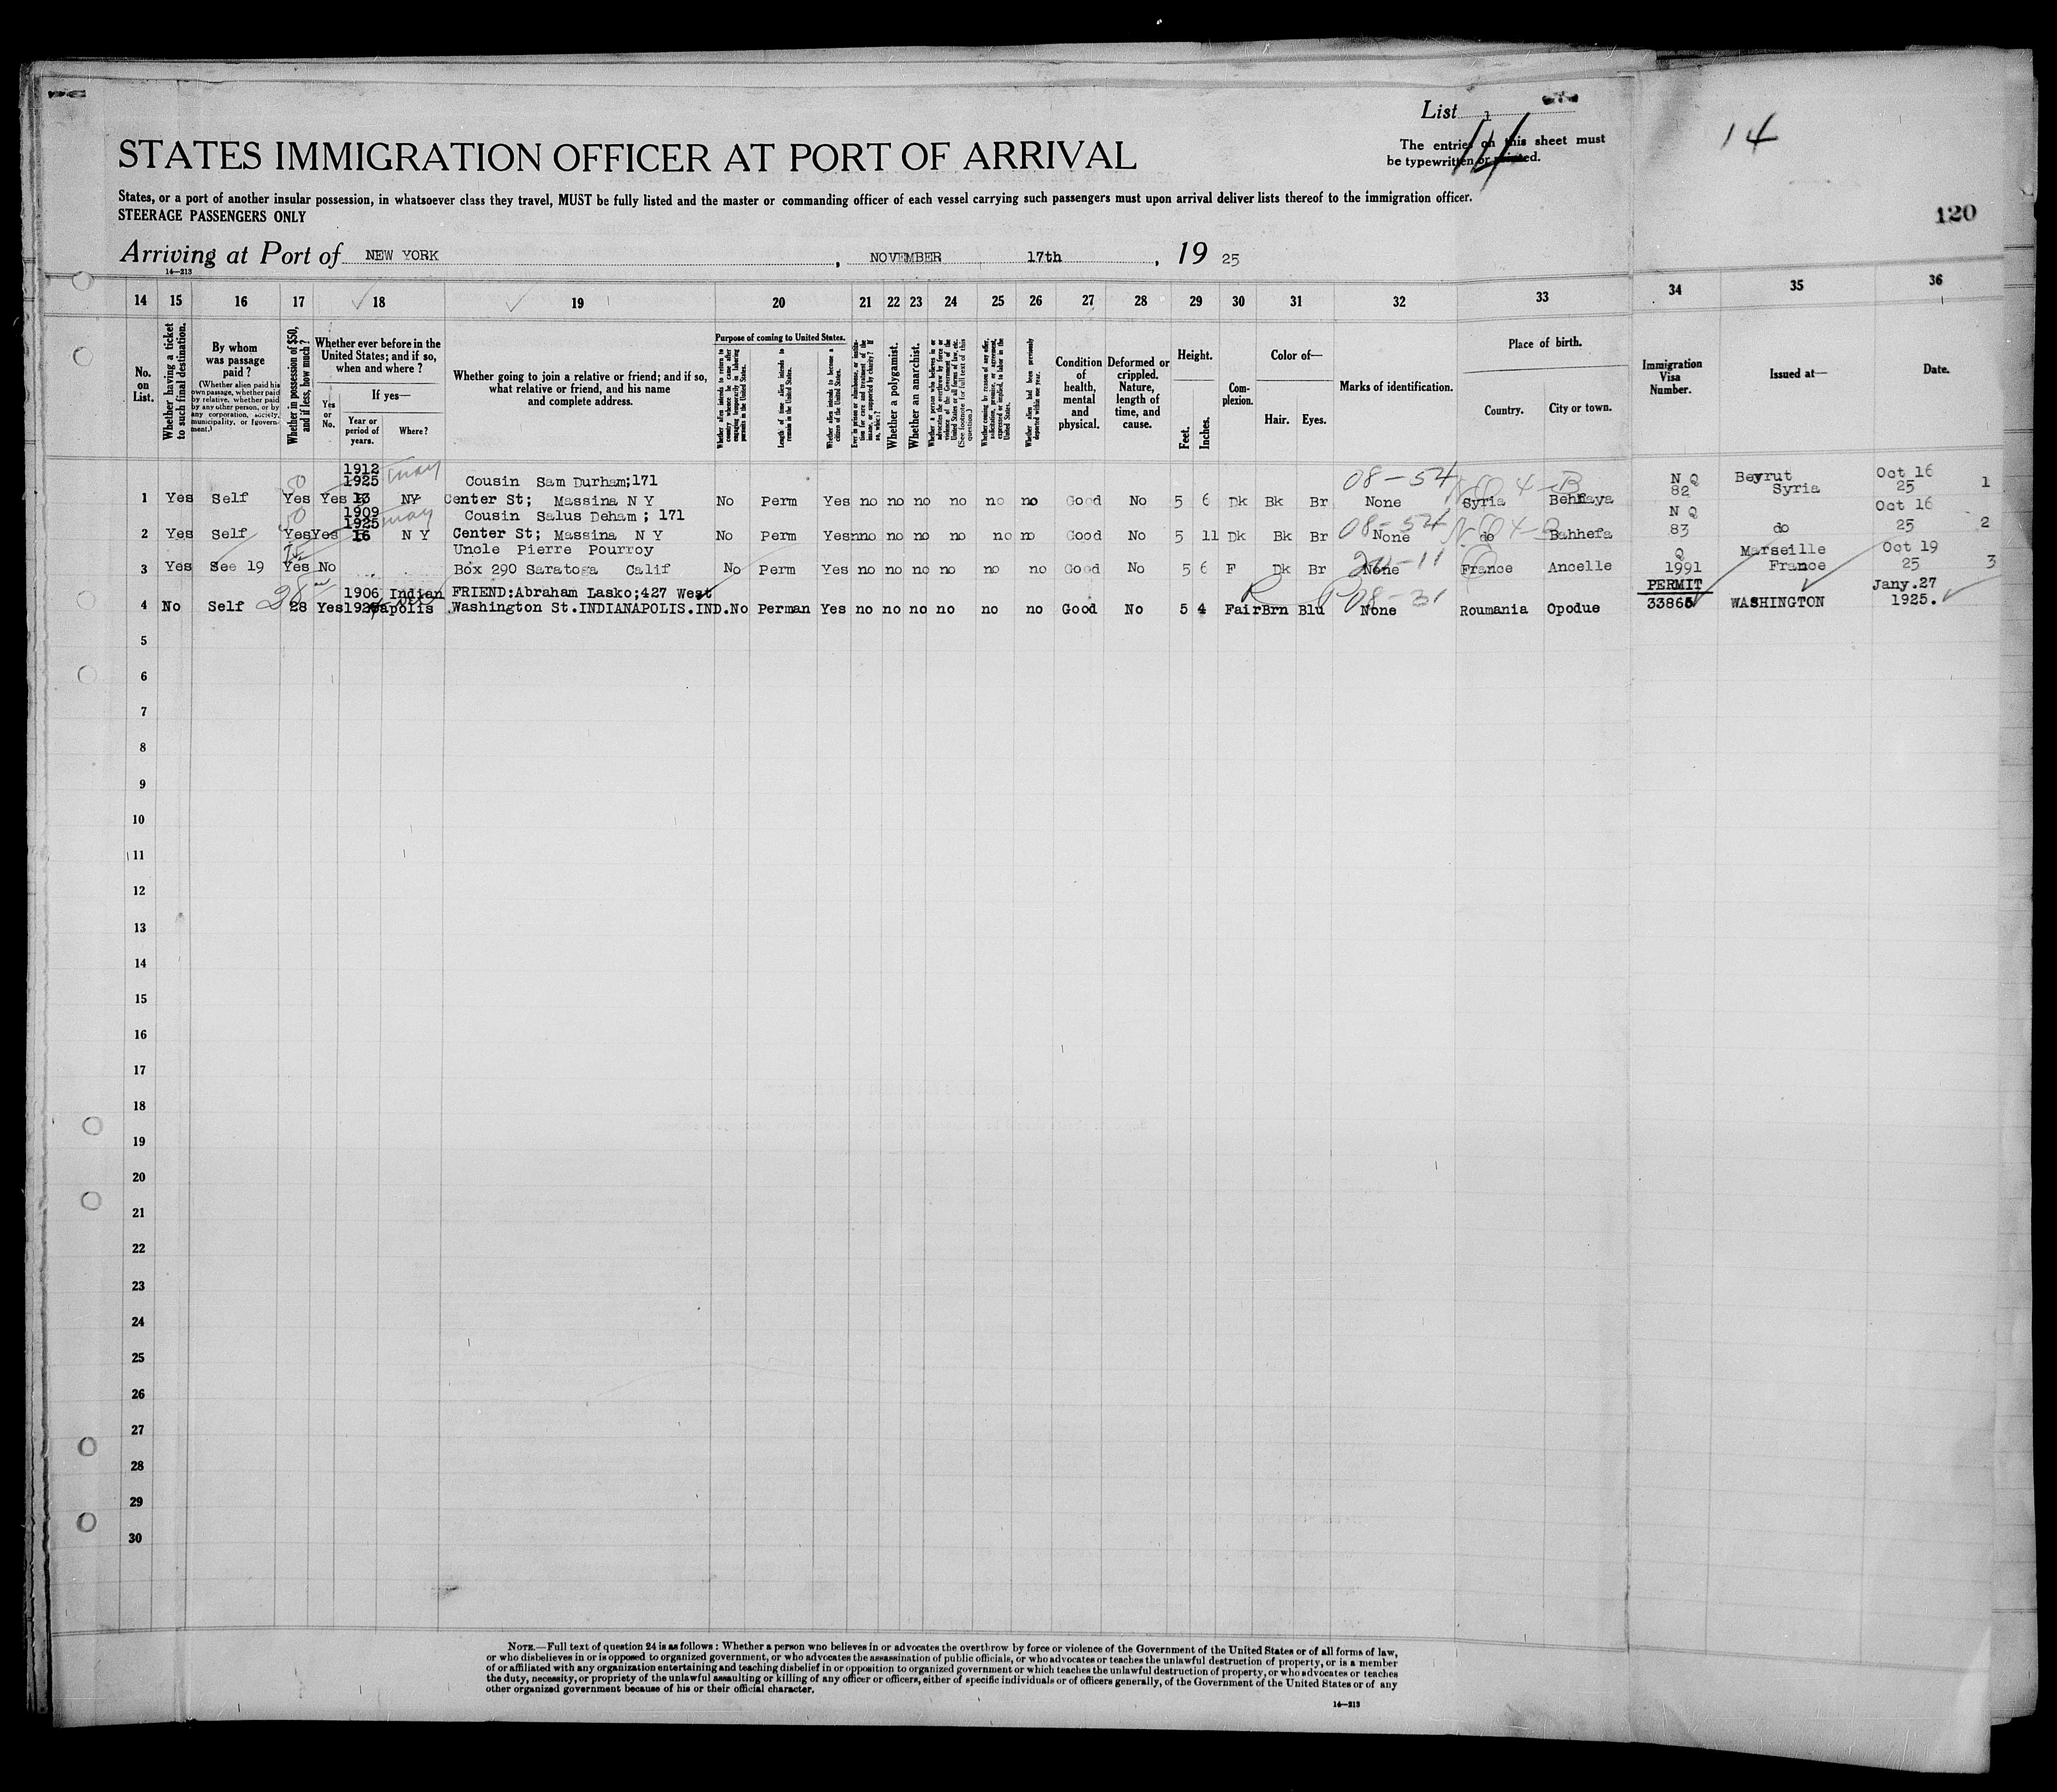 List 1
14
14
The entries on this sheet must
be typewritten or printed.
STATES IMMIGRATION OFFICER AT PORT OF ARRIVAL
120
States, or a port of another insular possession, in whatsoever class they travel, MUST be fully listed and the master or commanding officer of each vessel carrying such passengers must upon arrival deliver lists thereof to the immigration officer.
STEERAGE PASSENGERS ONLY
Arriving at Port of NEW YORK, NOVEMBER 17th, 19 25
14—213
14 15 16 17 18 19 20 21 22 23 24 25 26 27 28 29 30 31 32 33 34 35 36
No. on List.
Whether having a ticket to such final destination.
By whom was passage paid?
(Whether alien paid his own passage, whether paid by relative, whether paid by any other person, or by any corporation, society, municipality, or government.)
Whether in possession of $50, and if less, how much?
Whether ever before in the United States; and if so, when and where?
Yes or No.
If yes—
Year or period of years.
Where?
Whether going to join a relative or friend; and if so, what relative or friend, and his name and complete address.
Purpose of coming to United States.
Whether alien intends to return to country whence he came after engaging temporarily in laboring pursuits in the United States.
Length of time alien intends to remain in the United States.
Whether alien intends to become a citizen of the United States.
Ever in prison or almshouse, or institution for care and treatment of the insane, or supported by charity? If so, which?
Whether a polygamist.
Whether an anarchist.
Whether a person who believes in or advocates the overthrow by force or violence of the Government of the United States or all forms of law, etc. (See footnote for full text of this question.)
Whether coming by reason of any offer, solicitation, promise, or agreement, expressed or implied, to labor in the United States.
Whether alien had been previously deported within one year.
Condition of health, mental and physical.
Deformed or crippled. Nature, length of time, and cause.
Height.
Feet. Inches.
Complexion.
Color of—
Hair. Eyes.
Marks of identification.
Place of birth.
Country. City or town.
Immigration Visa Number.
Issued at—
Date.
1912
1925 may Cousin Sam Durham;171 08-54 N Q Beyrut Oct 16
1 Yes Self Yes Yes 13 NY Center St; Massina N Y No Perm Yes no no no no no no Good No 5 6 Dk Bk Br None Syria 82 Syria 25 1
1909
1925 may Cousin Salus Deham ; 171 08-54 N Q Oct 16
2 Yes Self Yes Yes 16 N Y Center St; Massina N Y No Perm Yes no no no no no no Good No 5 11 Dk Bk Br None do Bahhefa 83 do 25 2
Uncle Pierre Pourroy 20-11 Q Marseille Oct 19
3 Yes See 19 Yes No Box 290 Saratoga Calif No Perm Yes no no no no no no Good No 5 6 F Dk Br None France Ancelle 1991 France 25 3
1906 Indian FRIEND:Abraham Lasko;427 West 08-31 PERMIT Jany.27
4 No Self 28 Yes 1925 apolis Washington St.INDIANAPOLIS.IND. No Perman Yes no no no no no no Good No 5 4 Fair Brn Blu None Roumania Opodue 33865 WASHINGTON 1925.
5
6
7
8
9
10
11
12
13
14
15
16
17
18
19
20
21
22
23
24
25
26
27
28
29
30
NOTE.—Full text of question 24 is as follows: Whether a person who believes in or advocates the overthrow by force or violence of the Government of the United States or of all forms of law,
or who disbelieves in or is opposed to organized government, or who advocates the assassination of public officials, or who advocates or teaches the unlawful destruction of property, or is a member
of or affiliated with any organization entertaining and teaching disbelief in or opposition to organized government or which teaches the unlawful destruction of property, or who advocates or teaches
the duty, necessity, or propriety of the unlawful assaulting or killing of any officer or officers, either of specific individuals or of officers generally, of the Government of the United States or of any
other organized government because of his or their official character.
14—213